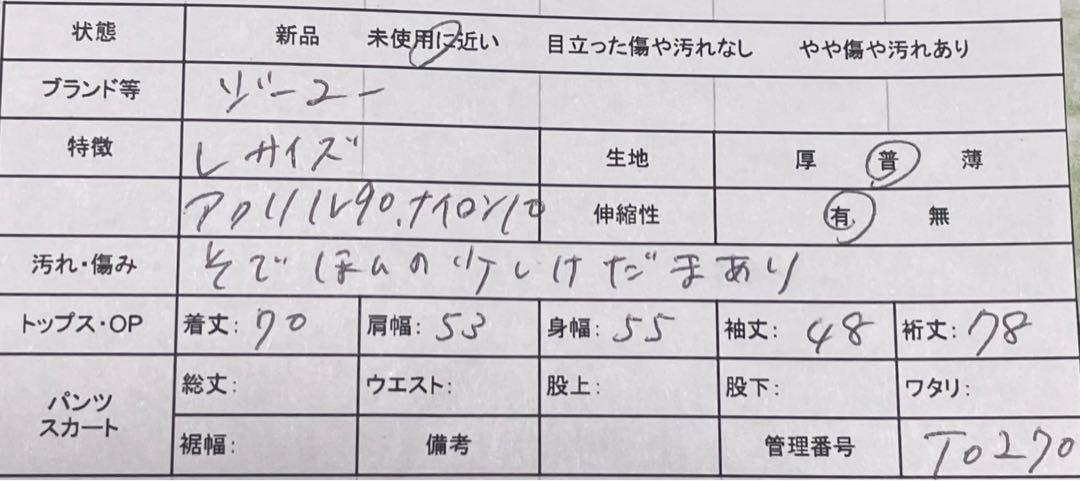 状態 新品 未使用に近い 目立った傷や汚れなし やや傷や汚れあり
ブランド等 ジーユー
特徴 Lサイズ 生地 厚 普 薄
アクリル90.ナイロン10 伸縮性 有 無
汚れ・傷み そでほんの少しけだまあり
トップス・OP 着丈: 70 肩幅: 53 身幅: 55 袖丈: 48 裄丈: 78
パンツ スカート 総丈: ウエスト: 股上: 股下: ワタリ:
裾幅: 備考 管理番号 T0270